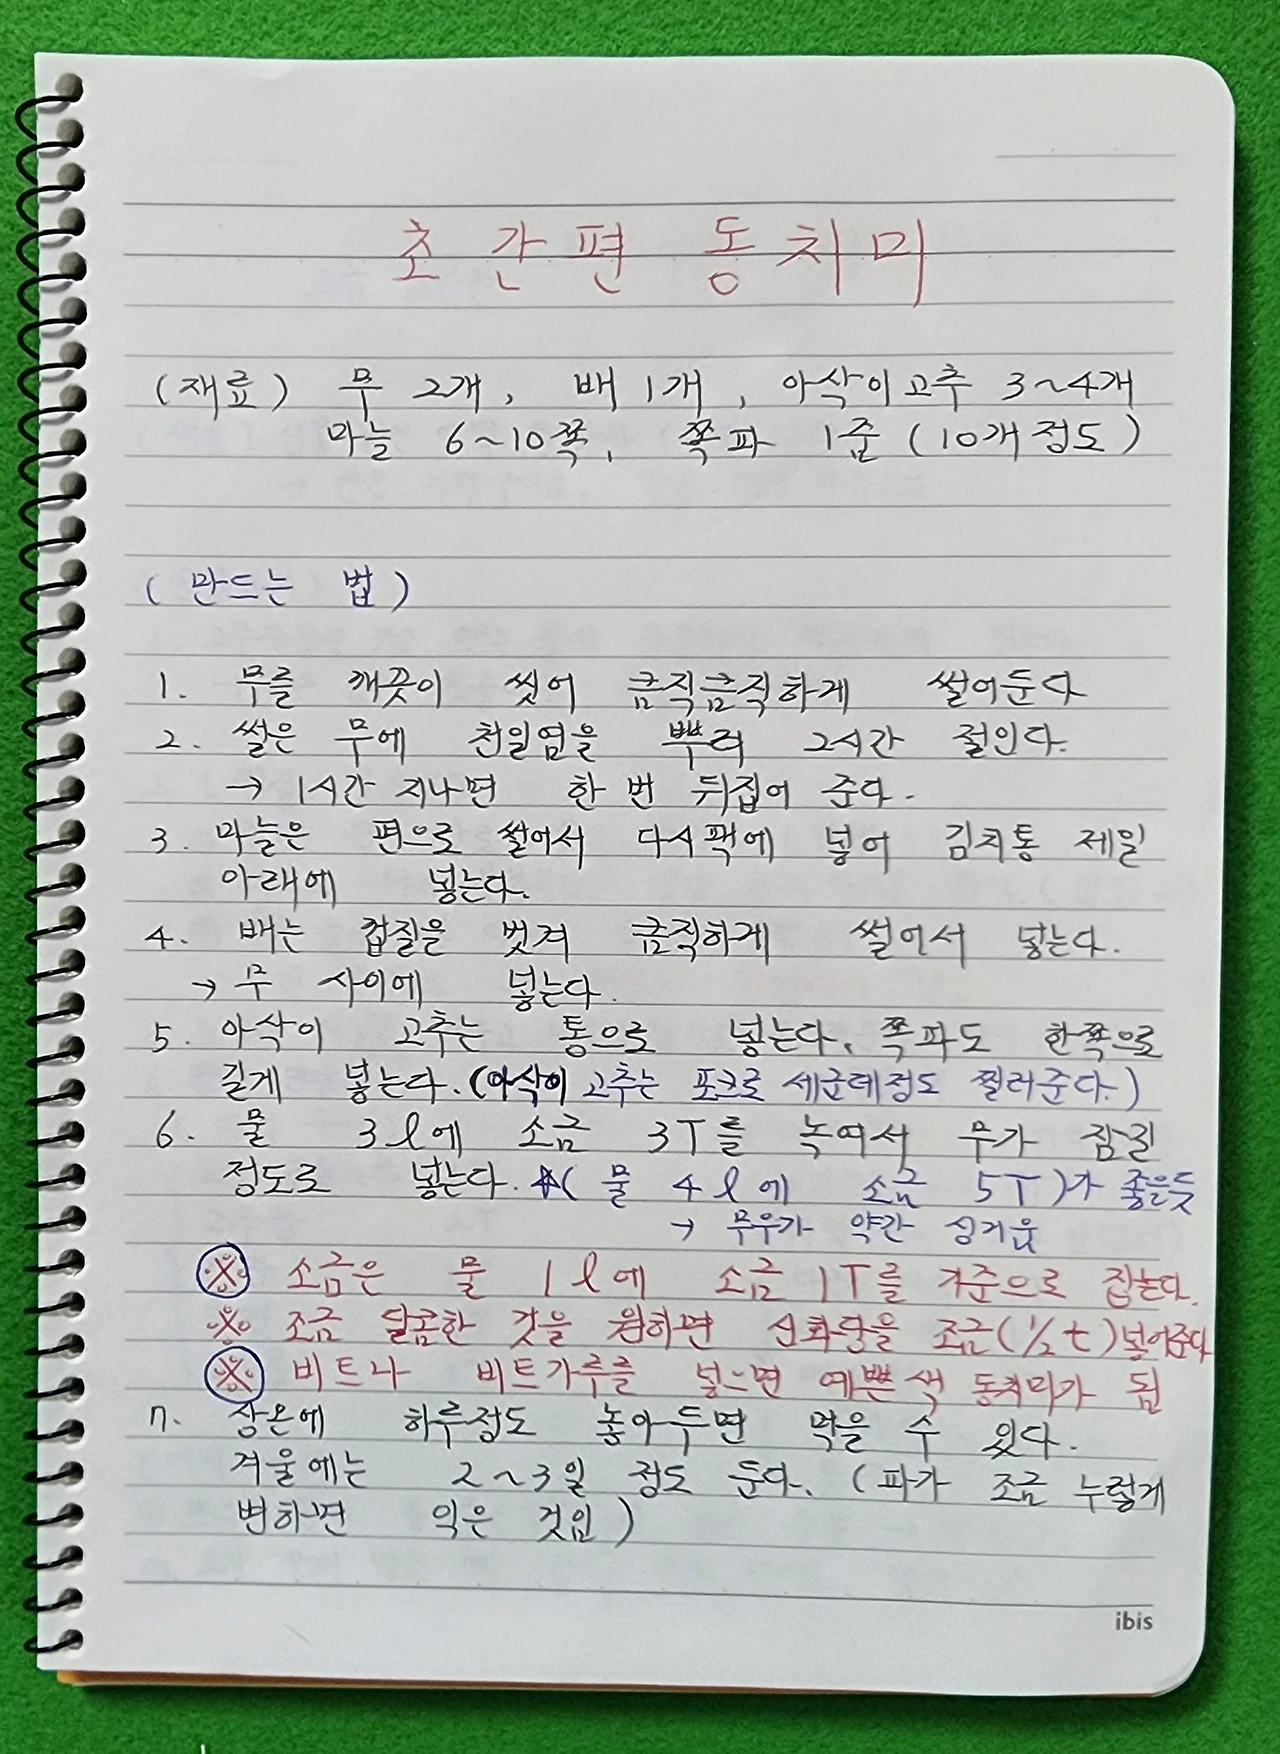 초간편 동치미
(재료) 무 2개, 배 1개, 아삭이고추 3~4개
마늘 6~10쪽, 쪽파 1줌 (10개정도)
(만드는 법)
1. 무를 깨끗이 씻어 큼직큼직하게 썰어둔다
2. 썰은 무에 천일염을 뿌려 2시간 절인다.
→ 1시간 지나면 한 번 뒤집어 준다.
3. 마늘은 편으로 썰어서 다시팩에 넣어 김치통 제일
아래에 넣는다.
4. 배는 껍질을 벗겨 큼직하게 썰어서 넣는다.
→ 무 사이에 넣는다.
5. 아삭이 고추는 통으로 넣는다. 쪽파도 한쪽으로
길게 넣는다. (아삭이 고추는 포크로 세군데정도 찔러준다.)
6. 물 3ℓ에 소금 3T를 녹여서 무가 잠길
정도로 넣는다. ☆( 물 4ℓ에 소금 5T)가 좋을듯
→ 무우가 약간 싱거움
※ 소금은 물 1ℓ에 소금 1T를 기준으로 잡는다.
※ 조금 달콤한 것을 원하면 신화당을 조금(1/2 t) 넣어준다
※ 비트나 비트가루를 넣으면 예쁜색 동치미가 됨
7. 상온에 하루정도 놓아두면 먹을 수 있다.
겨울에는 2~3일 정도 둔다. (파가 조금 누렇게
변하면 익은 것임)
ibis